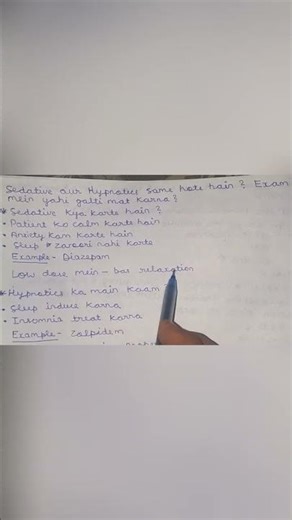 Sedative aur Hypnotics same hote hain ? Exam
mein yahi galti mat karna ?
* Sedative kya karte hain ?
• Patient ko calm karte hain
• Anxiety kam karte hain
• Sleep zaroori nahi karte
Example - Diazepam
Low dose mein - bas relaxation
* Hypnotics ka main kaam
• Sleep induce karna
• Insomnia treat karna
Example - Zolpidem